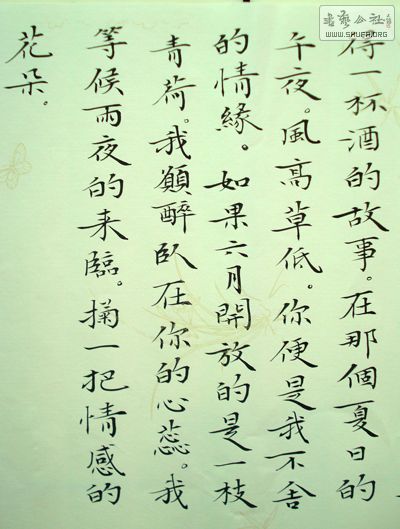 得一杯酒的故事。在那個夏日的
午夜。風高草低。你便是我不舍
的情緣。如果六月開放的是一枝
青荷。我願醉臥在你的心蕊。我
等候雨夜的来臨。掬一把情感的
花朵。
书艺公社
WWW.SHUFA.ORG